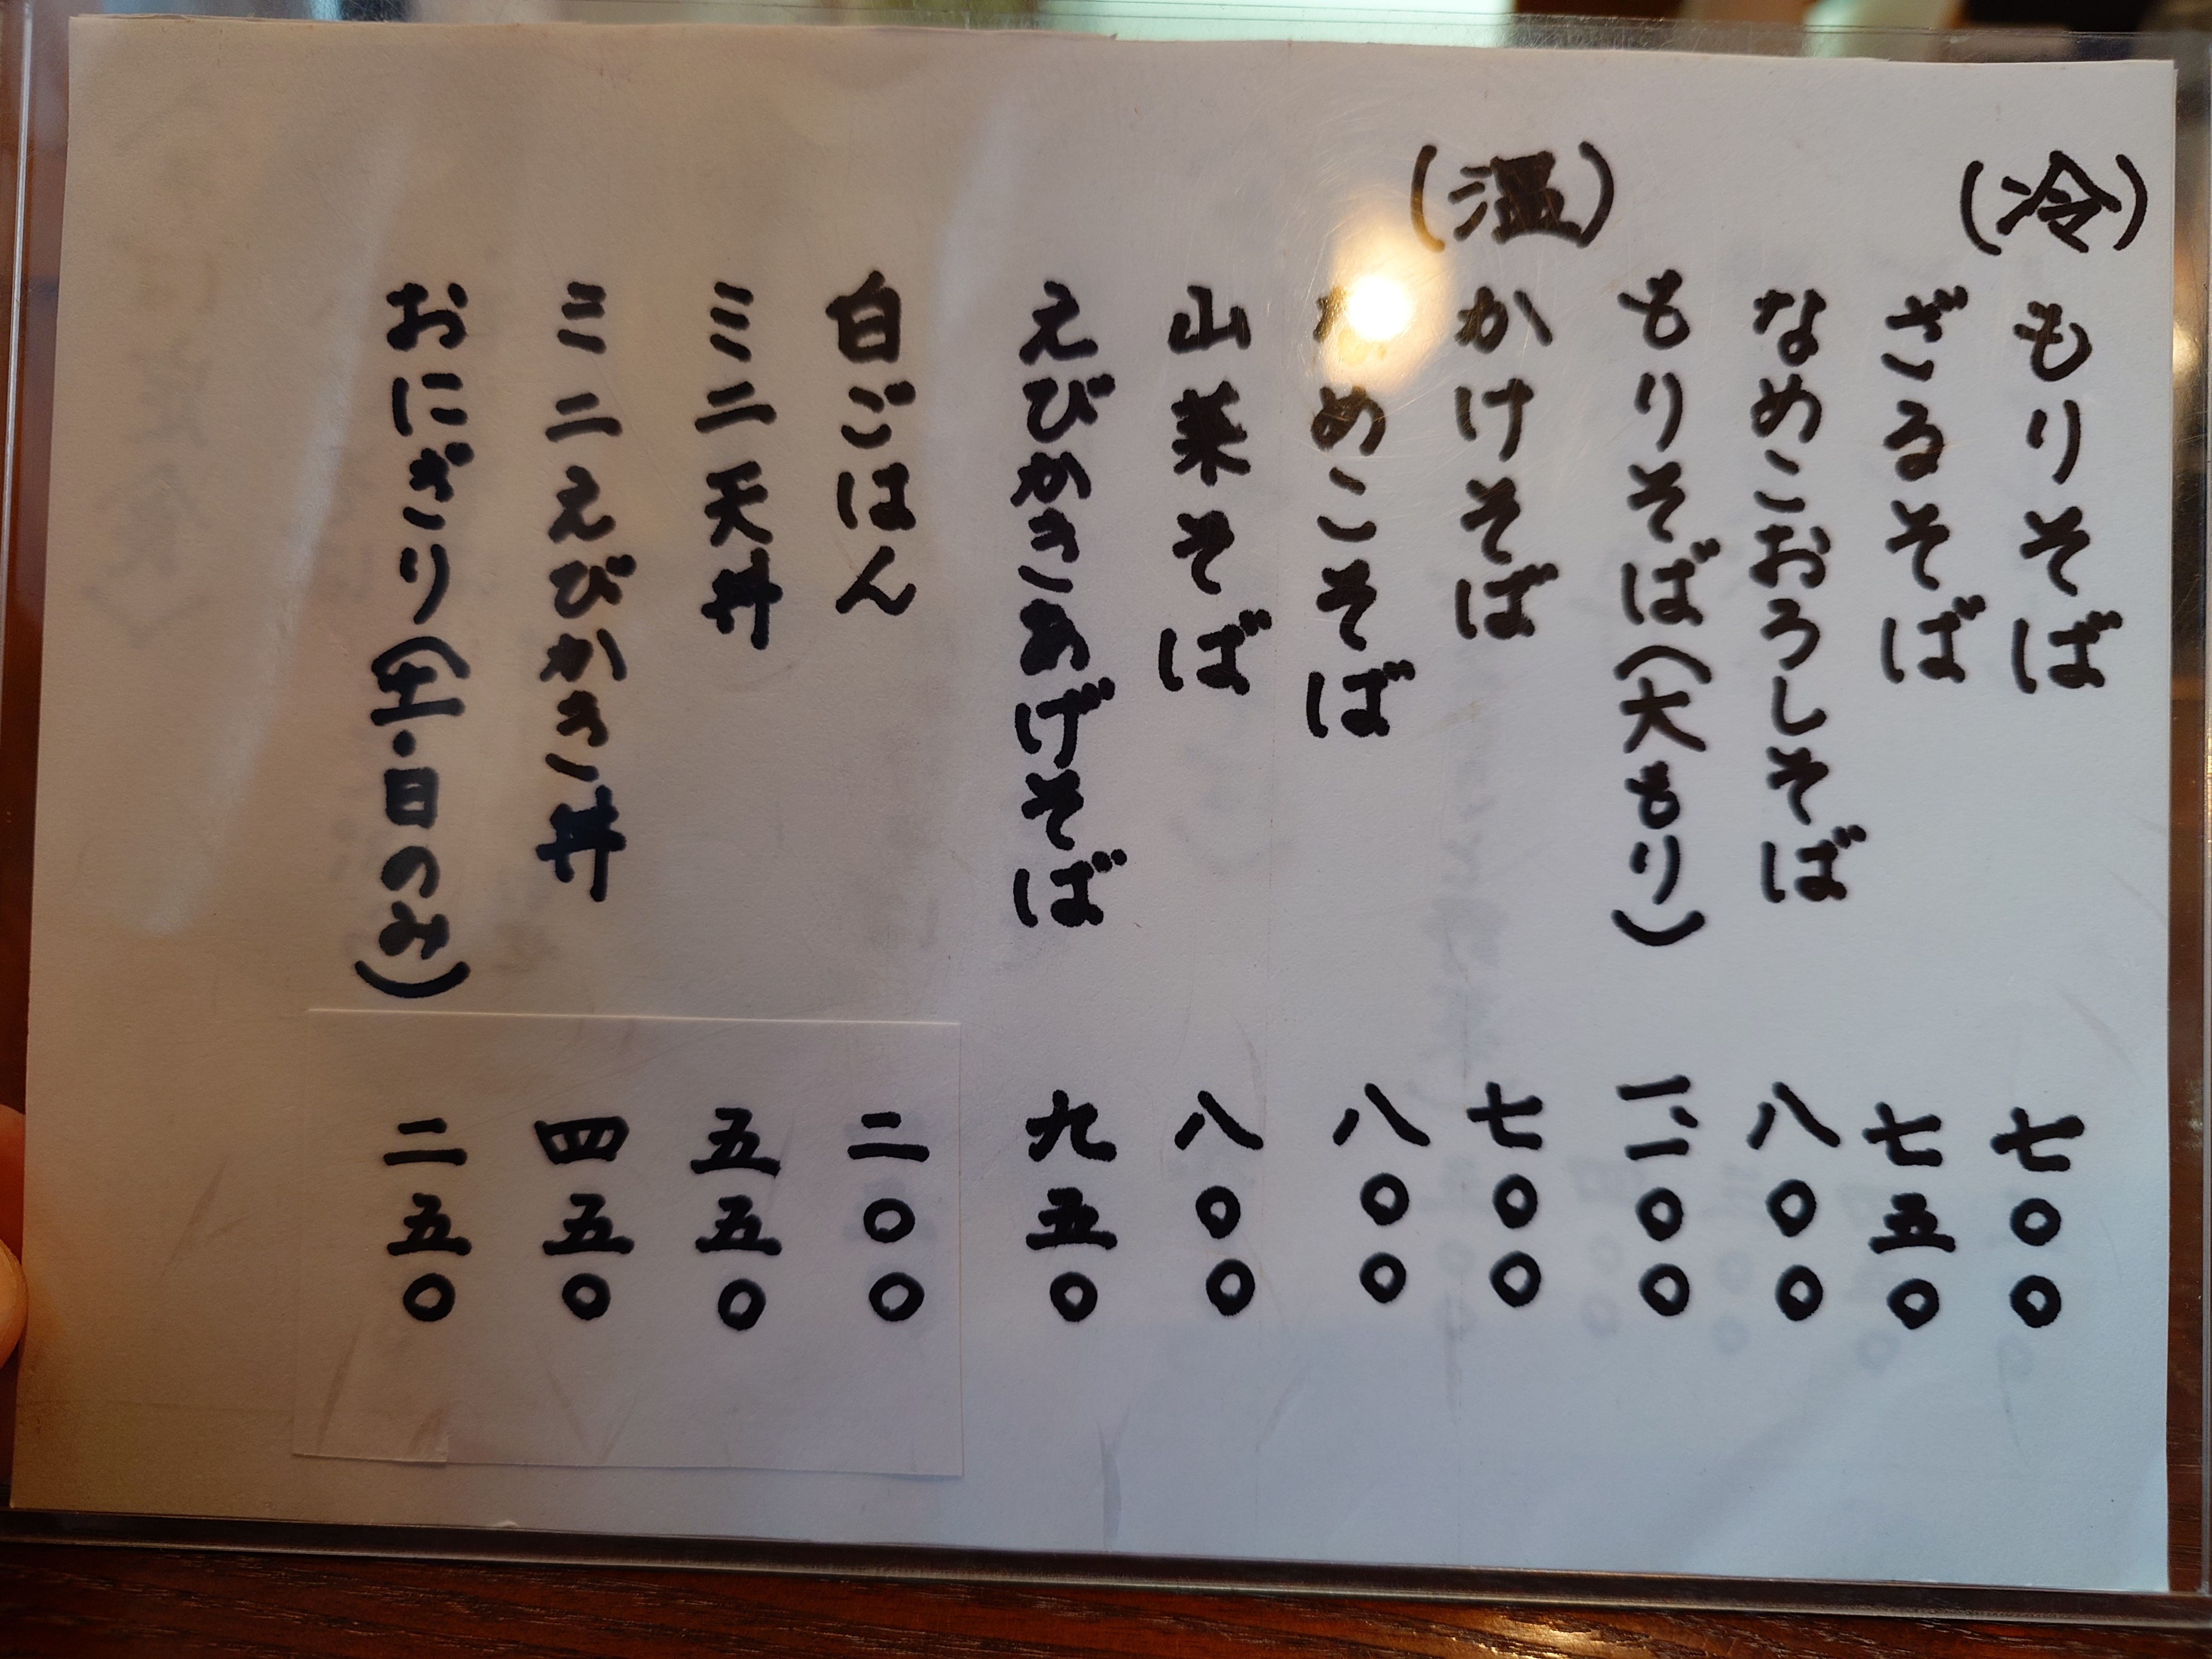 (冷)
もりそば 七〇〇
ざるそば 七五〇
なめこおろしそば 八〇〇
もりそば(大もり) 一、一〇〇
(温)
かけそば 七〇〇
なめこそば 八〇〇
山菜そば 八〇〇
えびかきあげそば 九五〇
白ごはん 二〇〇
ミニ天丼 五五〇
ミニえびかき丼 四五〇
おにぎり(土・日のみ) 二五〇